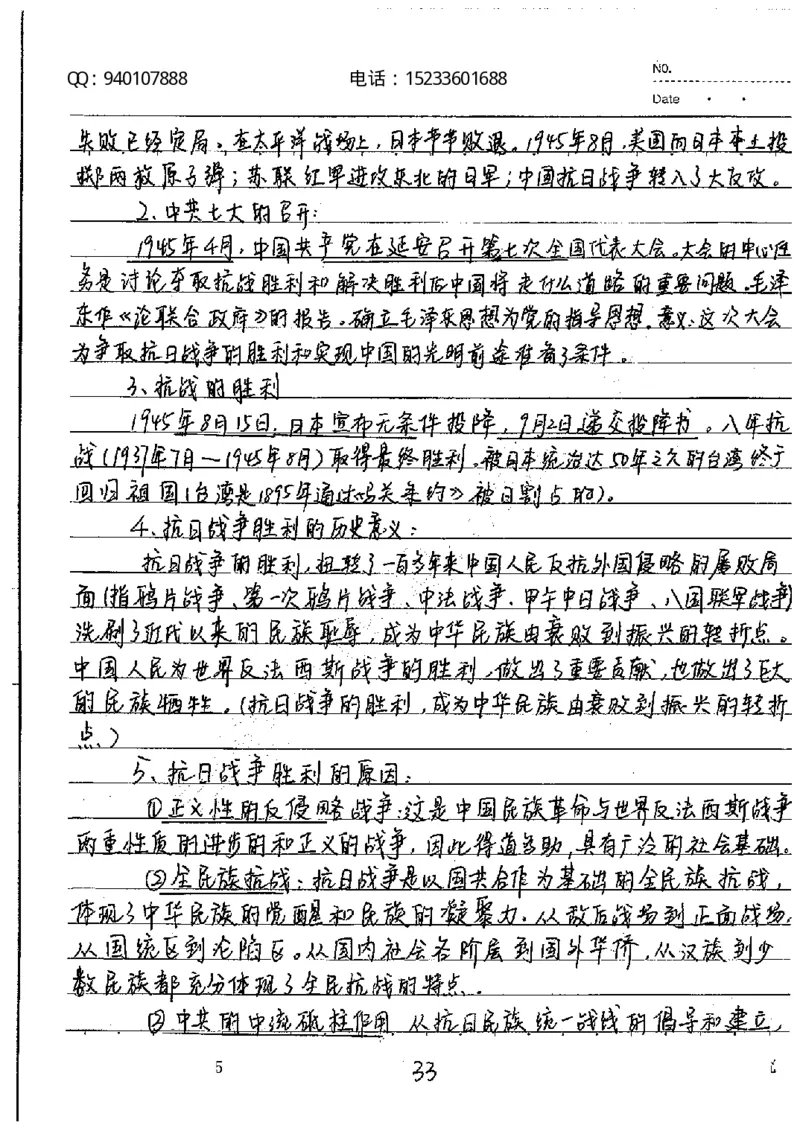 QQ：940107888 电话：15233601688 NO.
Date
失败已经定局。在太平洋战场上，日本节节败退。1945年8月，美国向日本本土投
掷两枚原子弹；苏联红军进攻东北的日军；中国抗日战争转入了大反攻。
2、中共七大的召开：
1945年4月，中国共产党在延安召开第七次全国代表大会。大会的中心任
务是讨论夺取抗战胜利和解决胜利后中国将走什么道路的重要问题。毛泽
东作《论联合政府》的报告。确立毛泽东思想为党的指导思想。意义：这次大会
为争取抗日战争的胜利和实现中国的光明前途准备了条件。
3、抗战的胜利
1945年8月15日，日本宣布无条件投降，9月2日递交投降书。八年抗
战（1937年7月—1945年8月）取得最终胜利。被日本统治达50年之久的台湾终于
回归祖国（台湾是1895年通过《马关条约》被日割占的）。
4、抗日战争胜利的历史意义：
抗日战争的胜利，扭转了一百多年来中国人民反抗外国侵略的屡败局
面（指鸦片战争、第一次鸦片战争、中法战争、甲午中日战争、八国联军战争）
洗刷了近代以来的民族耻辱，成为中华民族由衰败到振兴的转折点。
中国人民为世界反法西斯战争的胜利，做出了重要贡献，也做出了巨大
的民族牺牲。（抗日战争的胜利，成为中华民族由衰败到振兴的转折
点。）
5、抗日战争胜利的原因：
①正义性的反侵略战争：这是中国民族革命与世界反法西斯战争
两重性质的进步的和正义的战争，因此得道多助，具有广泛的社会基础。
②全民族抗战：抗日战争是以国共合作为基础的全民族抗战，
体现了中华民族的觉醒和民族的凝聚力。从敌后战场到正面战场，
从国统区到沦陷区。从国内社会各阶层到国外华侨，从汉族到少
数民族都充分体现了全民抗战的特点。
②中共的中流砥柱作用，从抗日民族统一战线的倡导和建立，
5 33